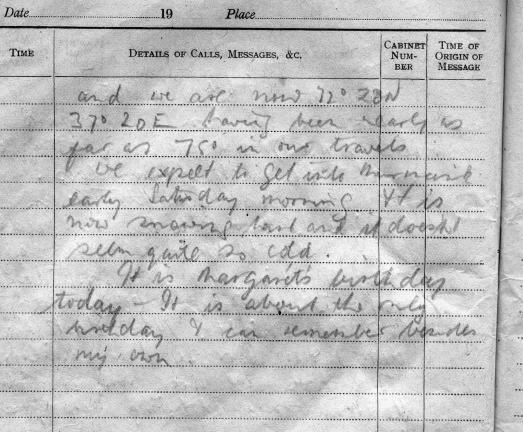 Date 19 Place
TIME DETAILS OF CALLS, MESSAGES, &C. CABINET NUM- BER TIME OF ORIGIN OF MESSAGE
and we are now 72° 28N
37° 20E having been nearly as
far as 75° in our travels
We expect to get into Murmansk
early Saturday morning It is
now snowing hard and it doesnt
seem quite so cold.
It is Margarets birthday
today - It is about the only
birthday I can remember besides
my own